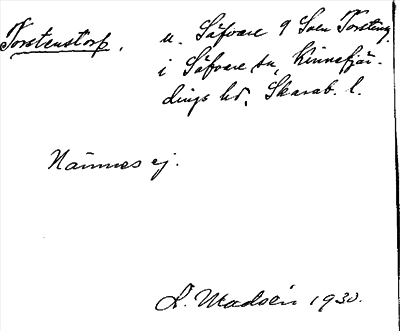 Torstenstorp. u. Säfvare 9 Sven Torsteng.
i Säfvare sn, Kinnefjär-
dings hd, Skarab. l.
Nämnes ej.
L. Madsén 1930.